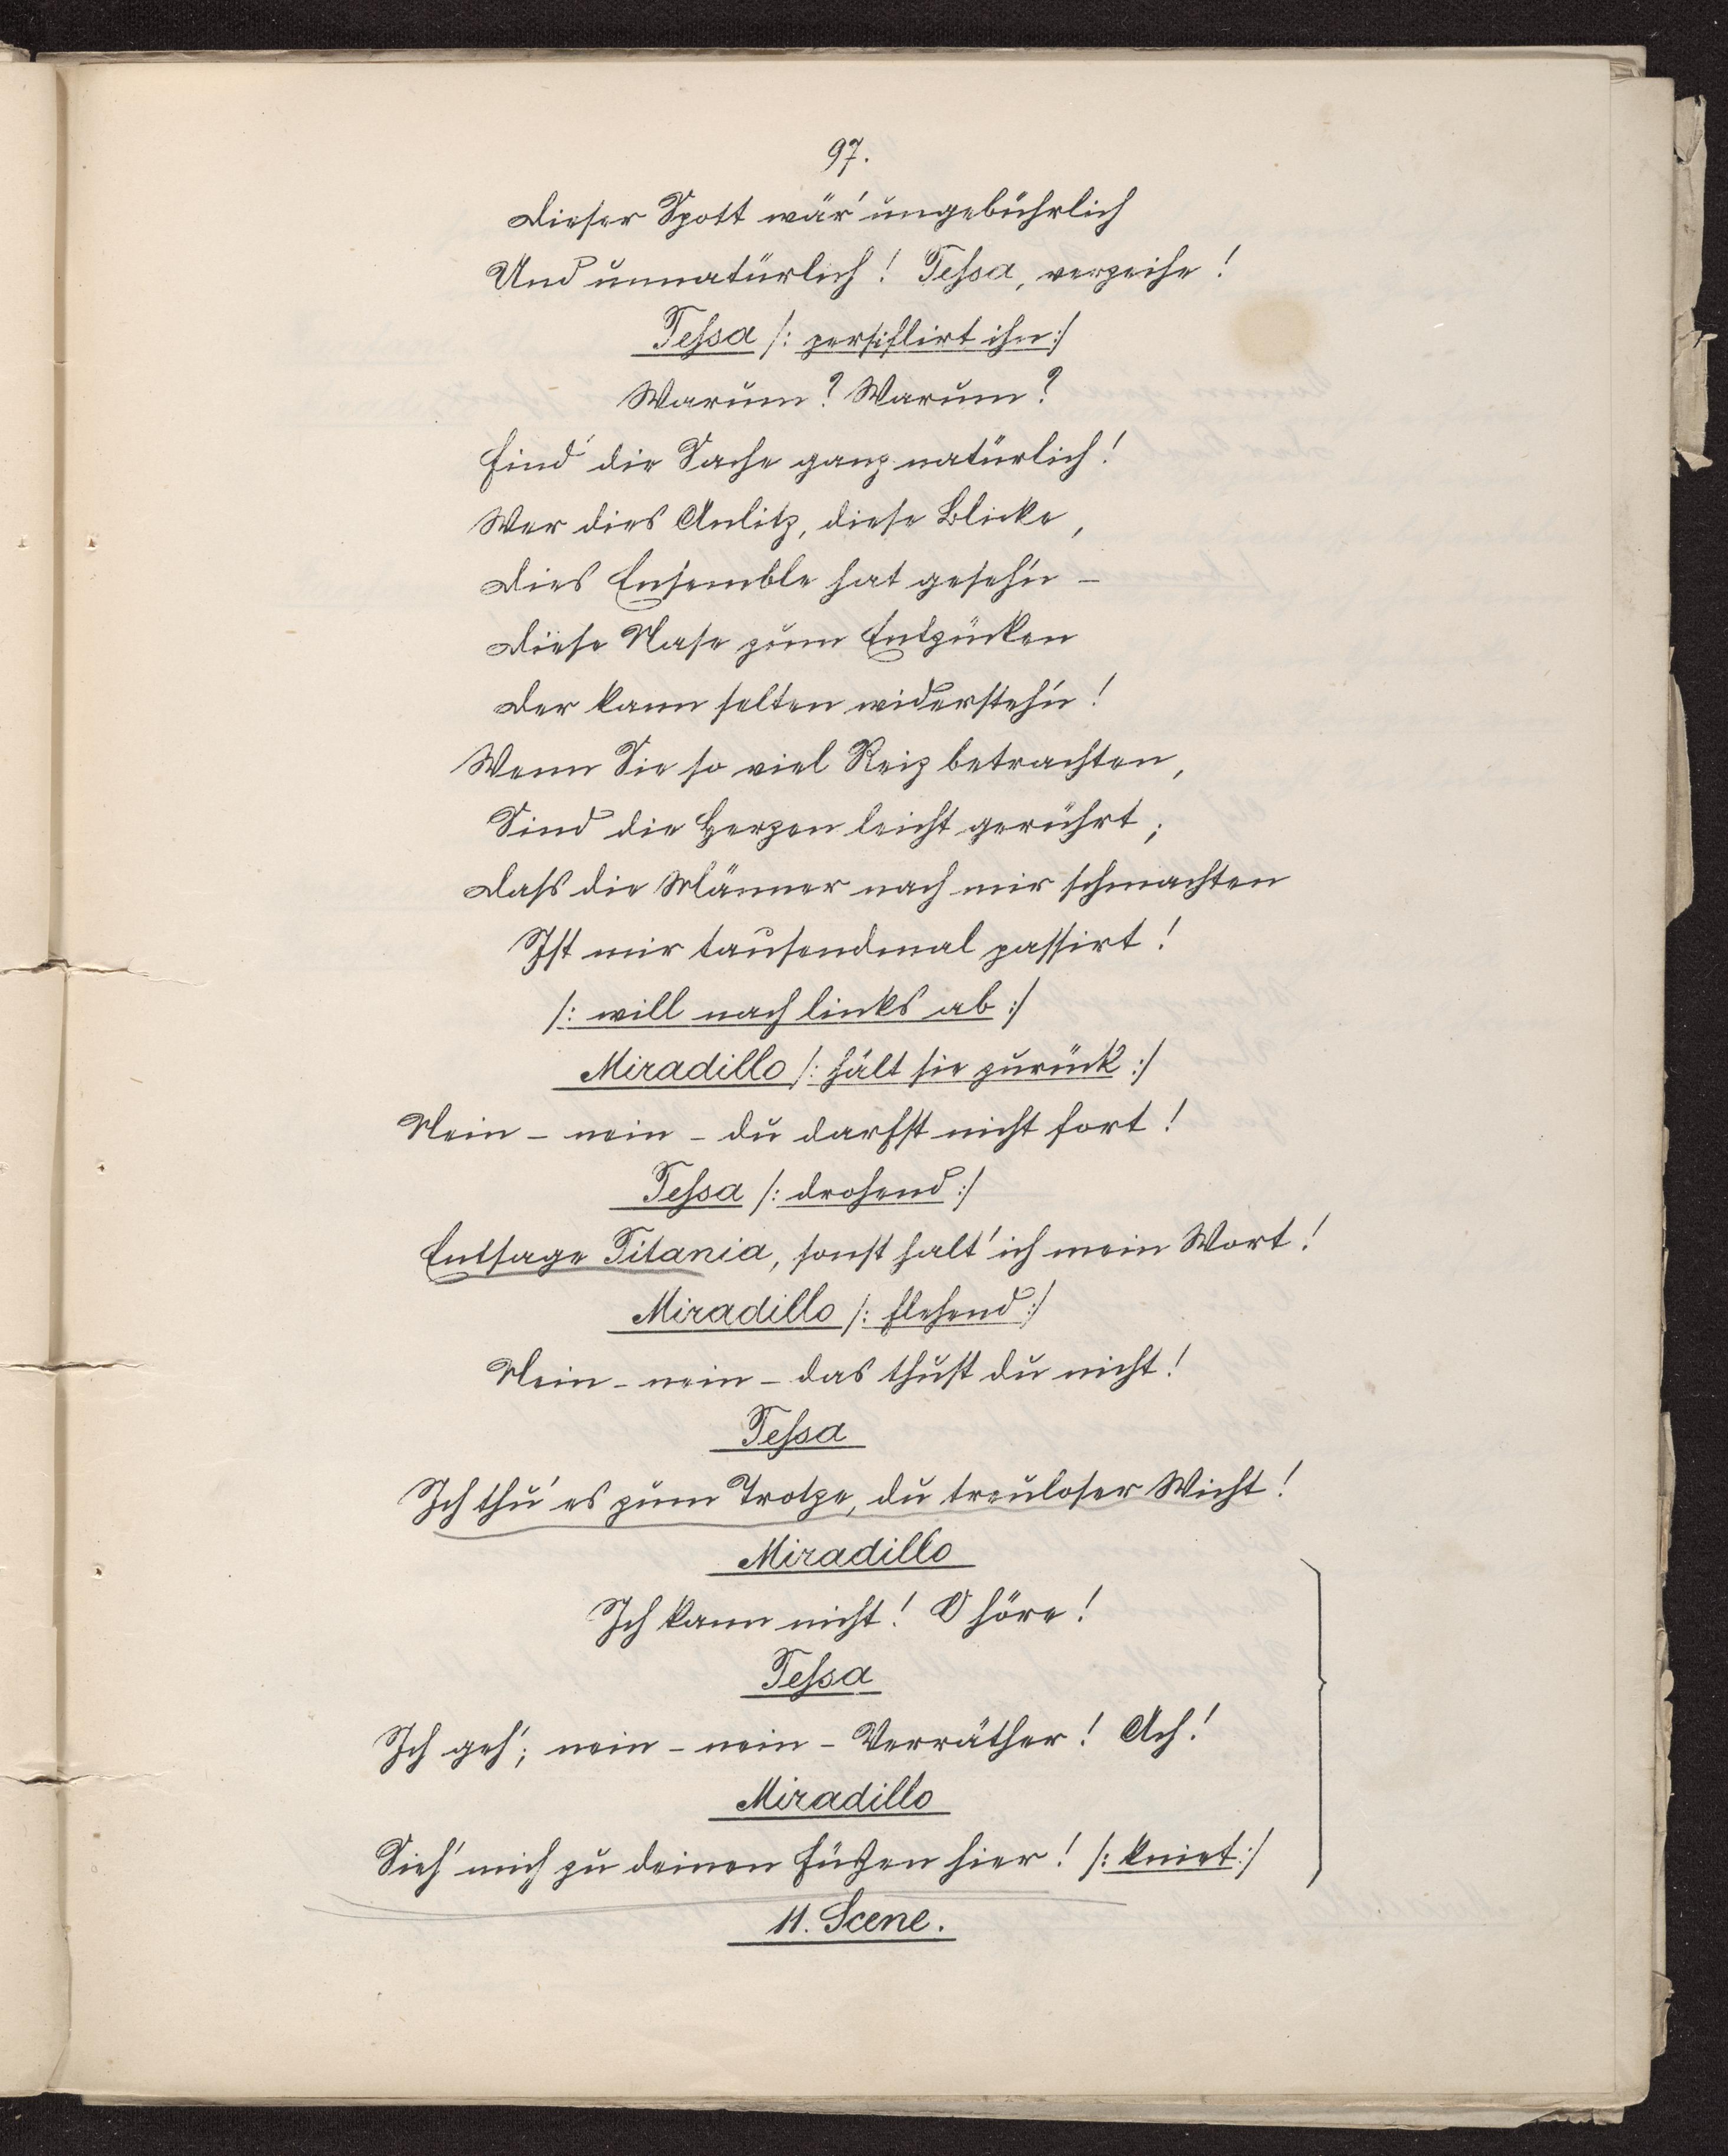 97.
Dieser Spott wär' ungebührlich
Und unnatürlich! Tessa, verzeihe!
Tessa /: persiflirt ihn:/
Warum? Warum?
Find' die Sache ganz natürlich!
Wer dies Anlitz, diese Blicke,
Dies Ensemble hat geseh'n –
Diese Nase zum Entzücken
Der kann selten widersteh'n!
Wenn Sie so viel Reiz betrachten,
Sind die Herzen leicht gerührt;
Dass die Männer nach mir schmachten
Ist mir tausendmal passirt!
/: will nach links ab :/
Miradillo /: hält sie zurück :/
Nein – nein – du darfst nicht fort!
Tessa /: drohend :/
Entsage Titania, sonst halt' ich mein Wort!
Miradillo /: flehend :/
Nein – nein – das thust du nicht!
Tessa
Ich thu' es zum Trotze, du treuloser Wicht!
Miradillo
Ich kann nicht! O höre!
Tessa
Ich geh'; nein – nein – Verräther! Ach!
Miradillo
Sieh' mich zu deinen Füßen hier! /: kniet :/
11. Scene.